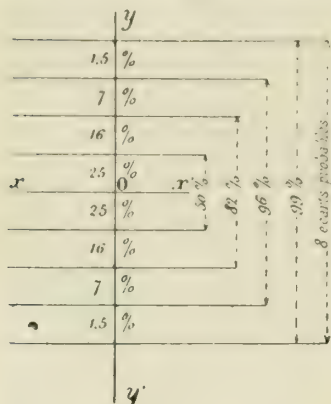 y
1.5 %
7 %
16 %
25 %
x O x
25 %
16 %
7 %
1.5 %
y'
50 %
82 %
96 %
99 %
8 écarts probables